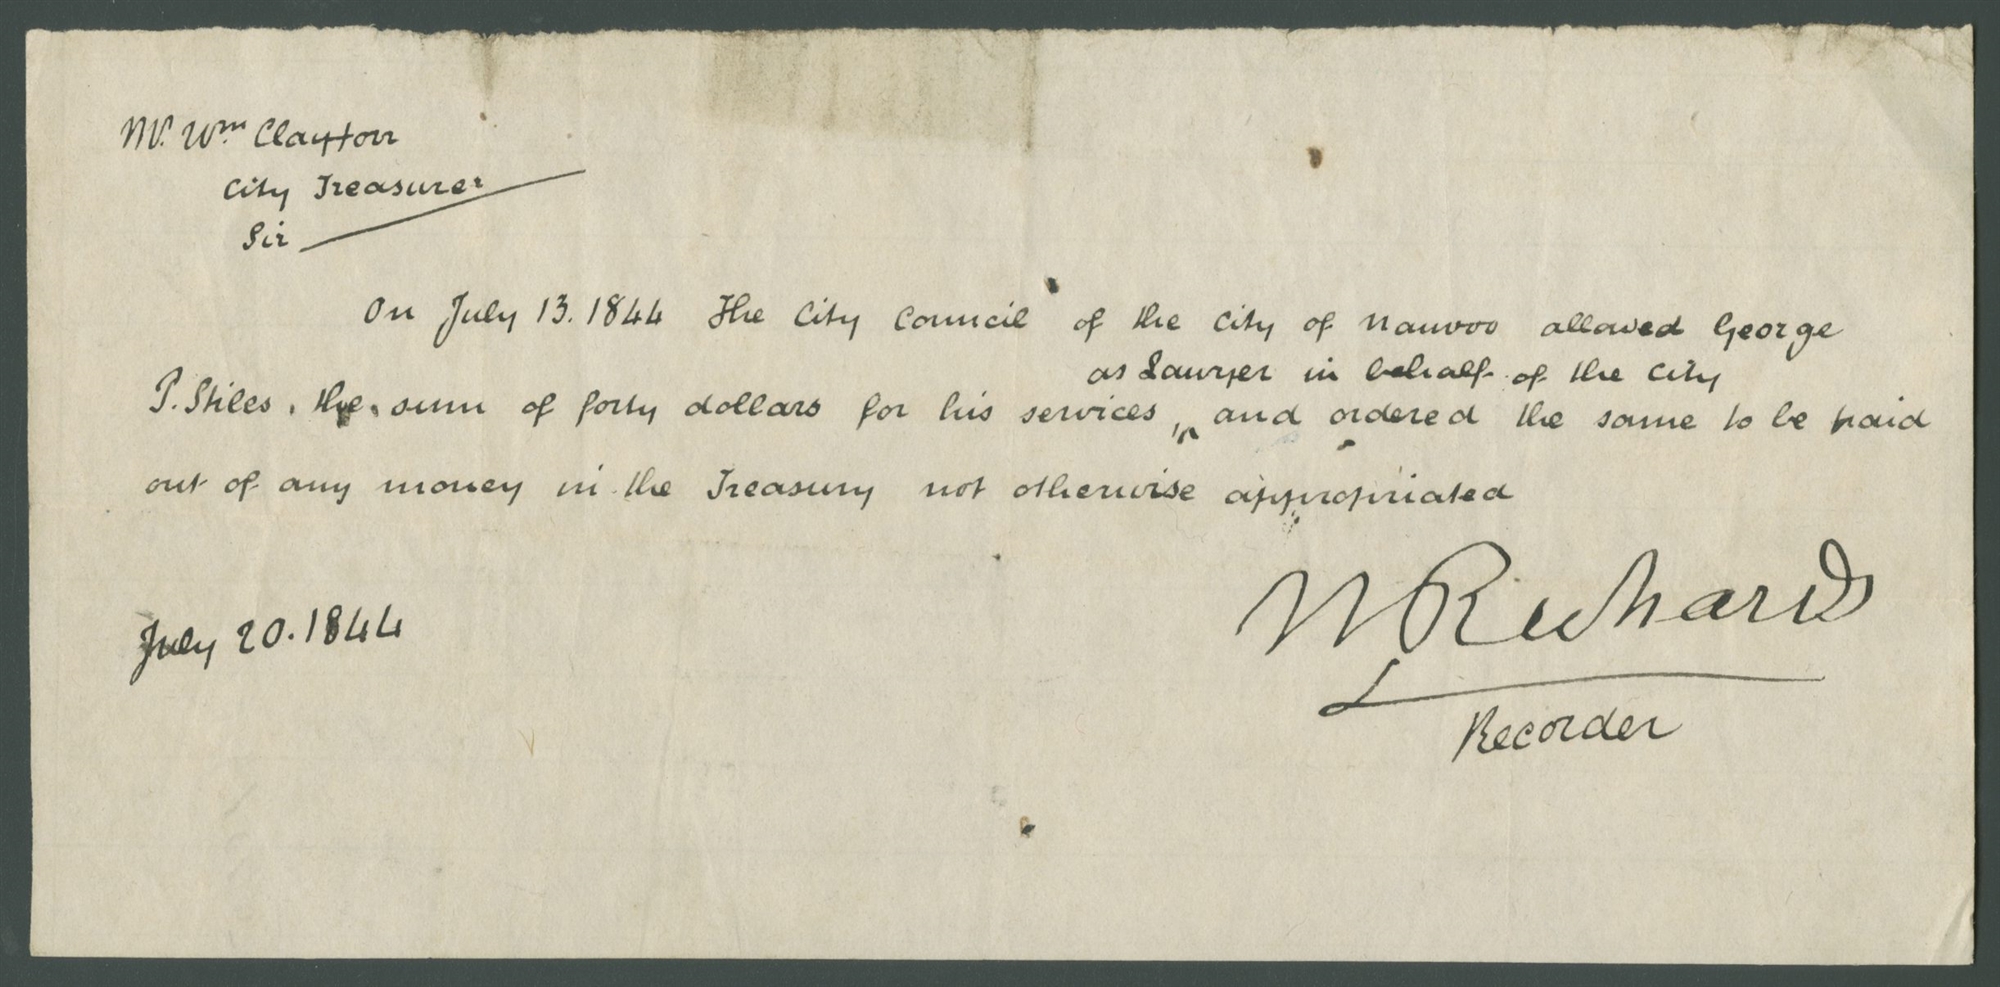 Mr. Wm Clayton
City Treasurer
Sir
On July 13. 1844 The City Council of the City of Nauvoo allowed George
as Lawyer in behalf of the City
P. Stiles, the sum of forty dollars for his services, and ordered the same to be paid
out of any money in the Treasury not otherwise appropriated
July 20. 1844
W Richards
Recorder